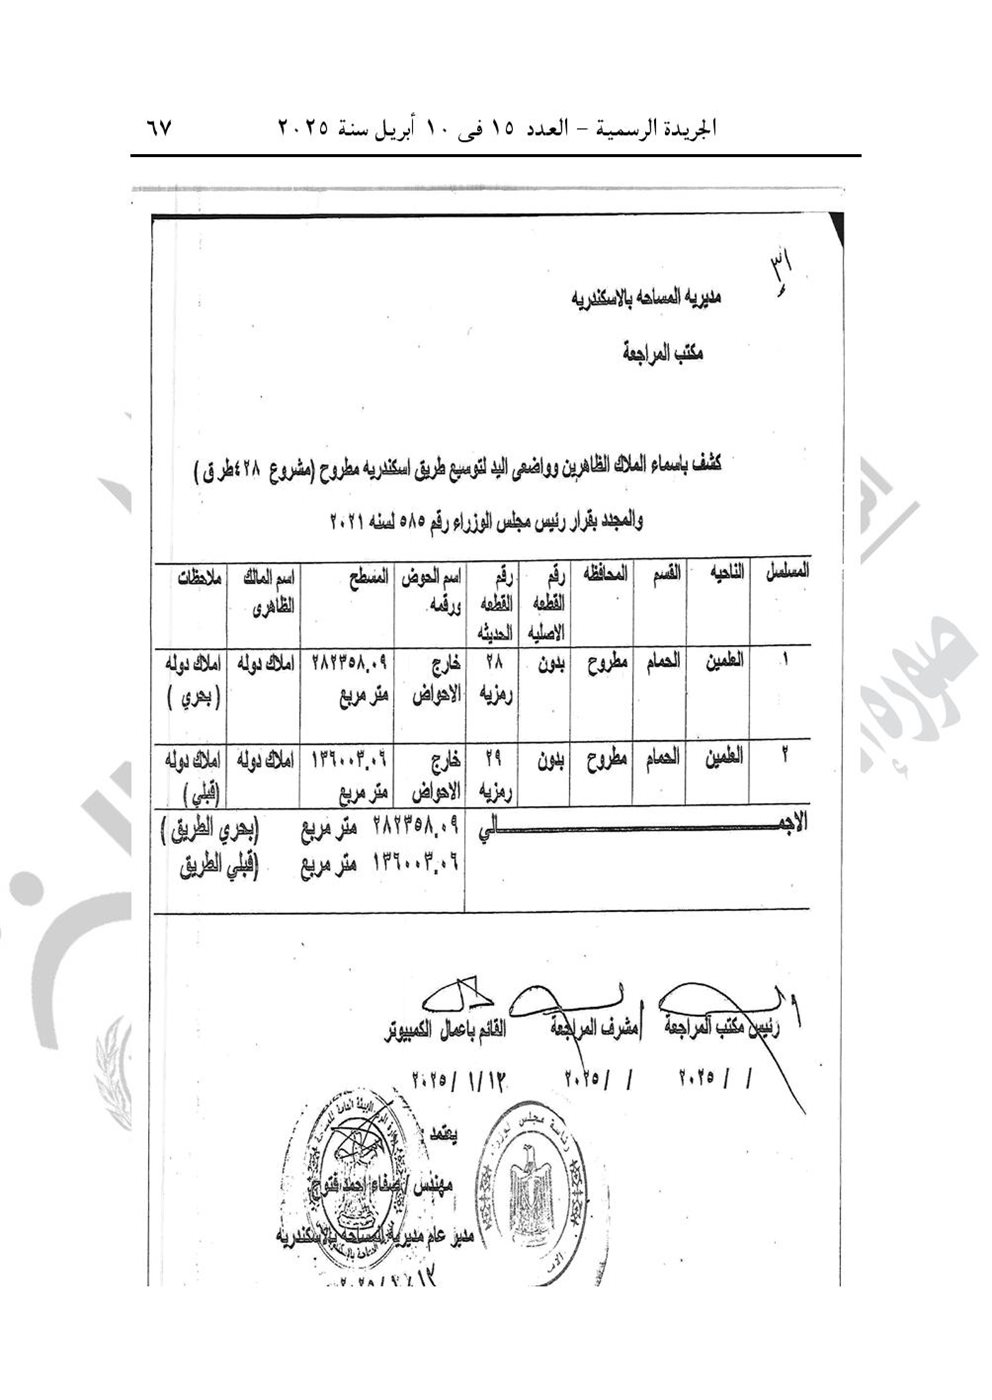 الجريدة الرسمية – العدد ١٥ فى ١٠ أبريل سنة ٢٠٢٥ ٦٧
٣١
مديريه المساحه بالاسكندريه
مكتب المراجعة
كشف باسماء الملاك الظاهرين وواضعى اليد لتوسيع طريق اسكندريه مطروح (مشروع ٤٢٨ طر ق )
والمجدد بقرار رئيس مجلس الوزراء رقم ٥٨٥ لسنه ٢٠٢١
المسلسل الناحيه القسم المحافظه رقم القطعه الاصليه رقم القطعه الحديثه اسم الحوض ورقمه المسطح اسم المالك الظاهرى ملاحظات
١ العلمين الحمام مطروح بدون ٢٨ رمزيه خارج الاحواض ٢٨٢٣٥٨.٠٩ متر مربع املاك دوله املاك دوله ( بحري )
٢ العلمين الحمام مطروح بدون ٢٩ رمزيه خارج الاحواض ١٣٦٠٠٣.٠٦ متر مربع املاك دوله املاك دوله (قبلي )
الاجمـــــــــــــــــالي ٢٨٢٣٥٨.٠٩ متر مربع (بحري الطريق )
١٣٦٠٠٣.٠٦ متر مربع (قبلي الطريق
رئيس مكتب المراجعة مشرف المراجعة القائم باعمال الكمبيوتر
/ / ٢٠٢٥ / / ٢٠٢٥ ١٢/ ١ / ٢٠٢٥
يعتمد :
مهندس / صفاء احمد فتوح
مدير عام مديرية المساحه بالاسكندريه
رئاسة مجلس الوزراء
الهيئة العامة للمساحة
صورة